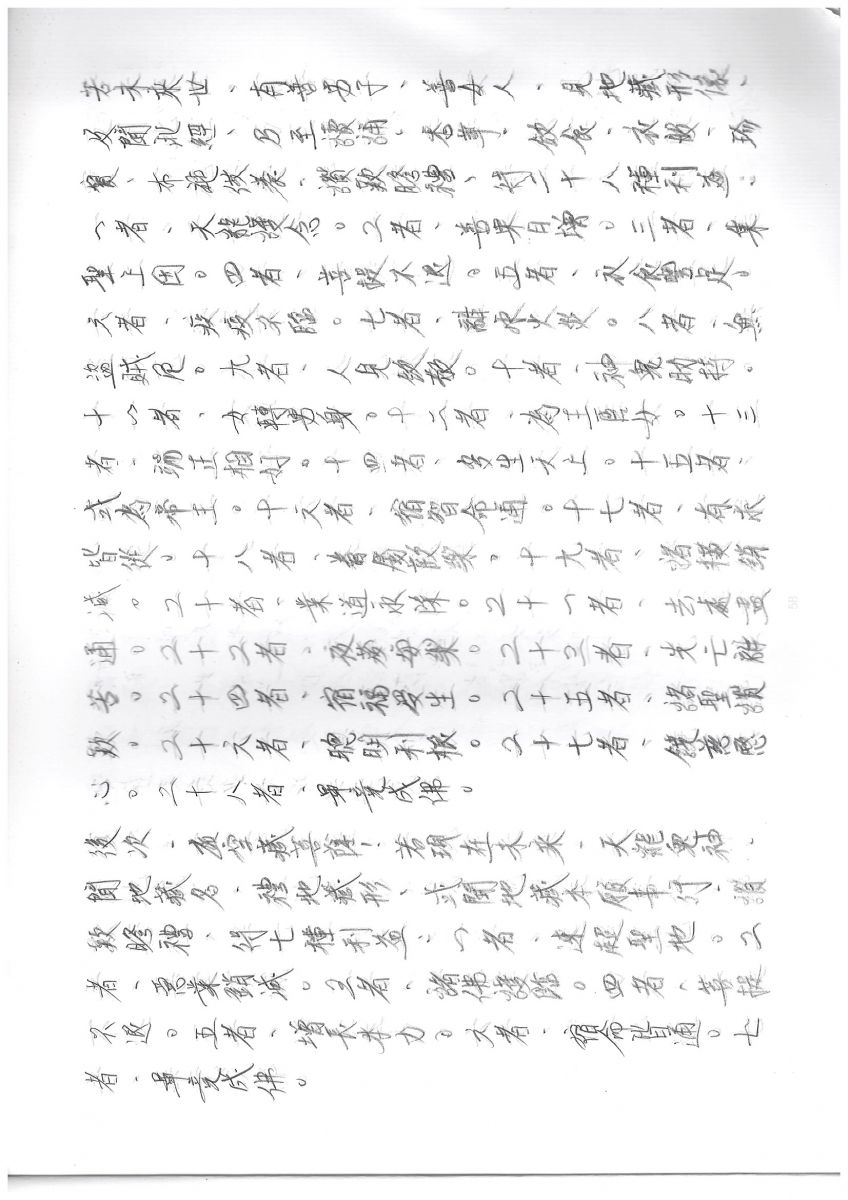 若未來世、有善男子、善女人、見地藏形像、
及聞此經、乃至讀誦、香華、飲食、衣服、珍
寶、布施供養、讚歎瞻禮、得二十八種利益:
一者、天龍護念。二者、善果日增。三者、集
聖上因。四者、菩提不退。五者、衣食豐足。
六者、疾疫不臨。七者、離水火災。八者、無
盜賊厄。九者、人見欽敬。十者、神鬼助持。
十一者、女轉男身。十二者、為王臣女。十三
者、端正相好。十四者、多生天上。十五者、
或為帝王。十六者、宿智命通。十七者、有求
皆從。十八者、眷屬歡樂。十九者、諸橫銷
滅。二十者、業道永除。二十一者、去處盡
通。二十二者、夜夢安樂。二十三者、先亡離
苦。二十四者、宿福受生。二十五者、諸聖讚
歎。二十六者、聰明利根。二十七者、饒慈愍
心。二十八者、畢竟成佛。
復次、虛空藏菩薩!若現在未來、天龍鬼神、
聞地藏名、禮地藏形、或聞地藏本願事行、讚
歎瞻禮、得七種利益:一者、速超聖地。二
者、惡業銷滅。三者、諸佛護臨。四者、菩提
不退。五者、增長本力。六者、宿命皆通。七
者、畢竟成佛。
58